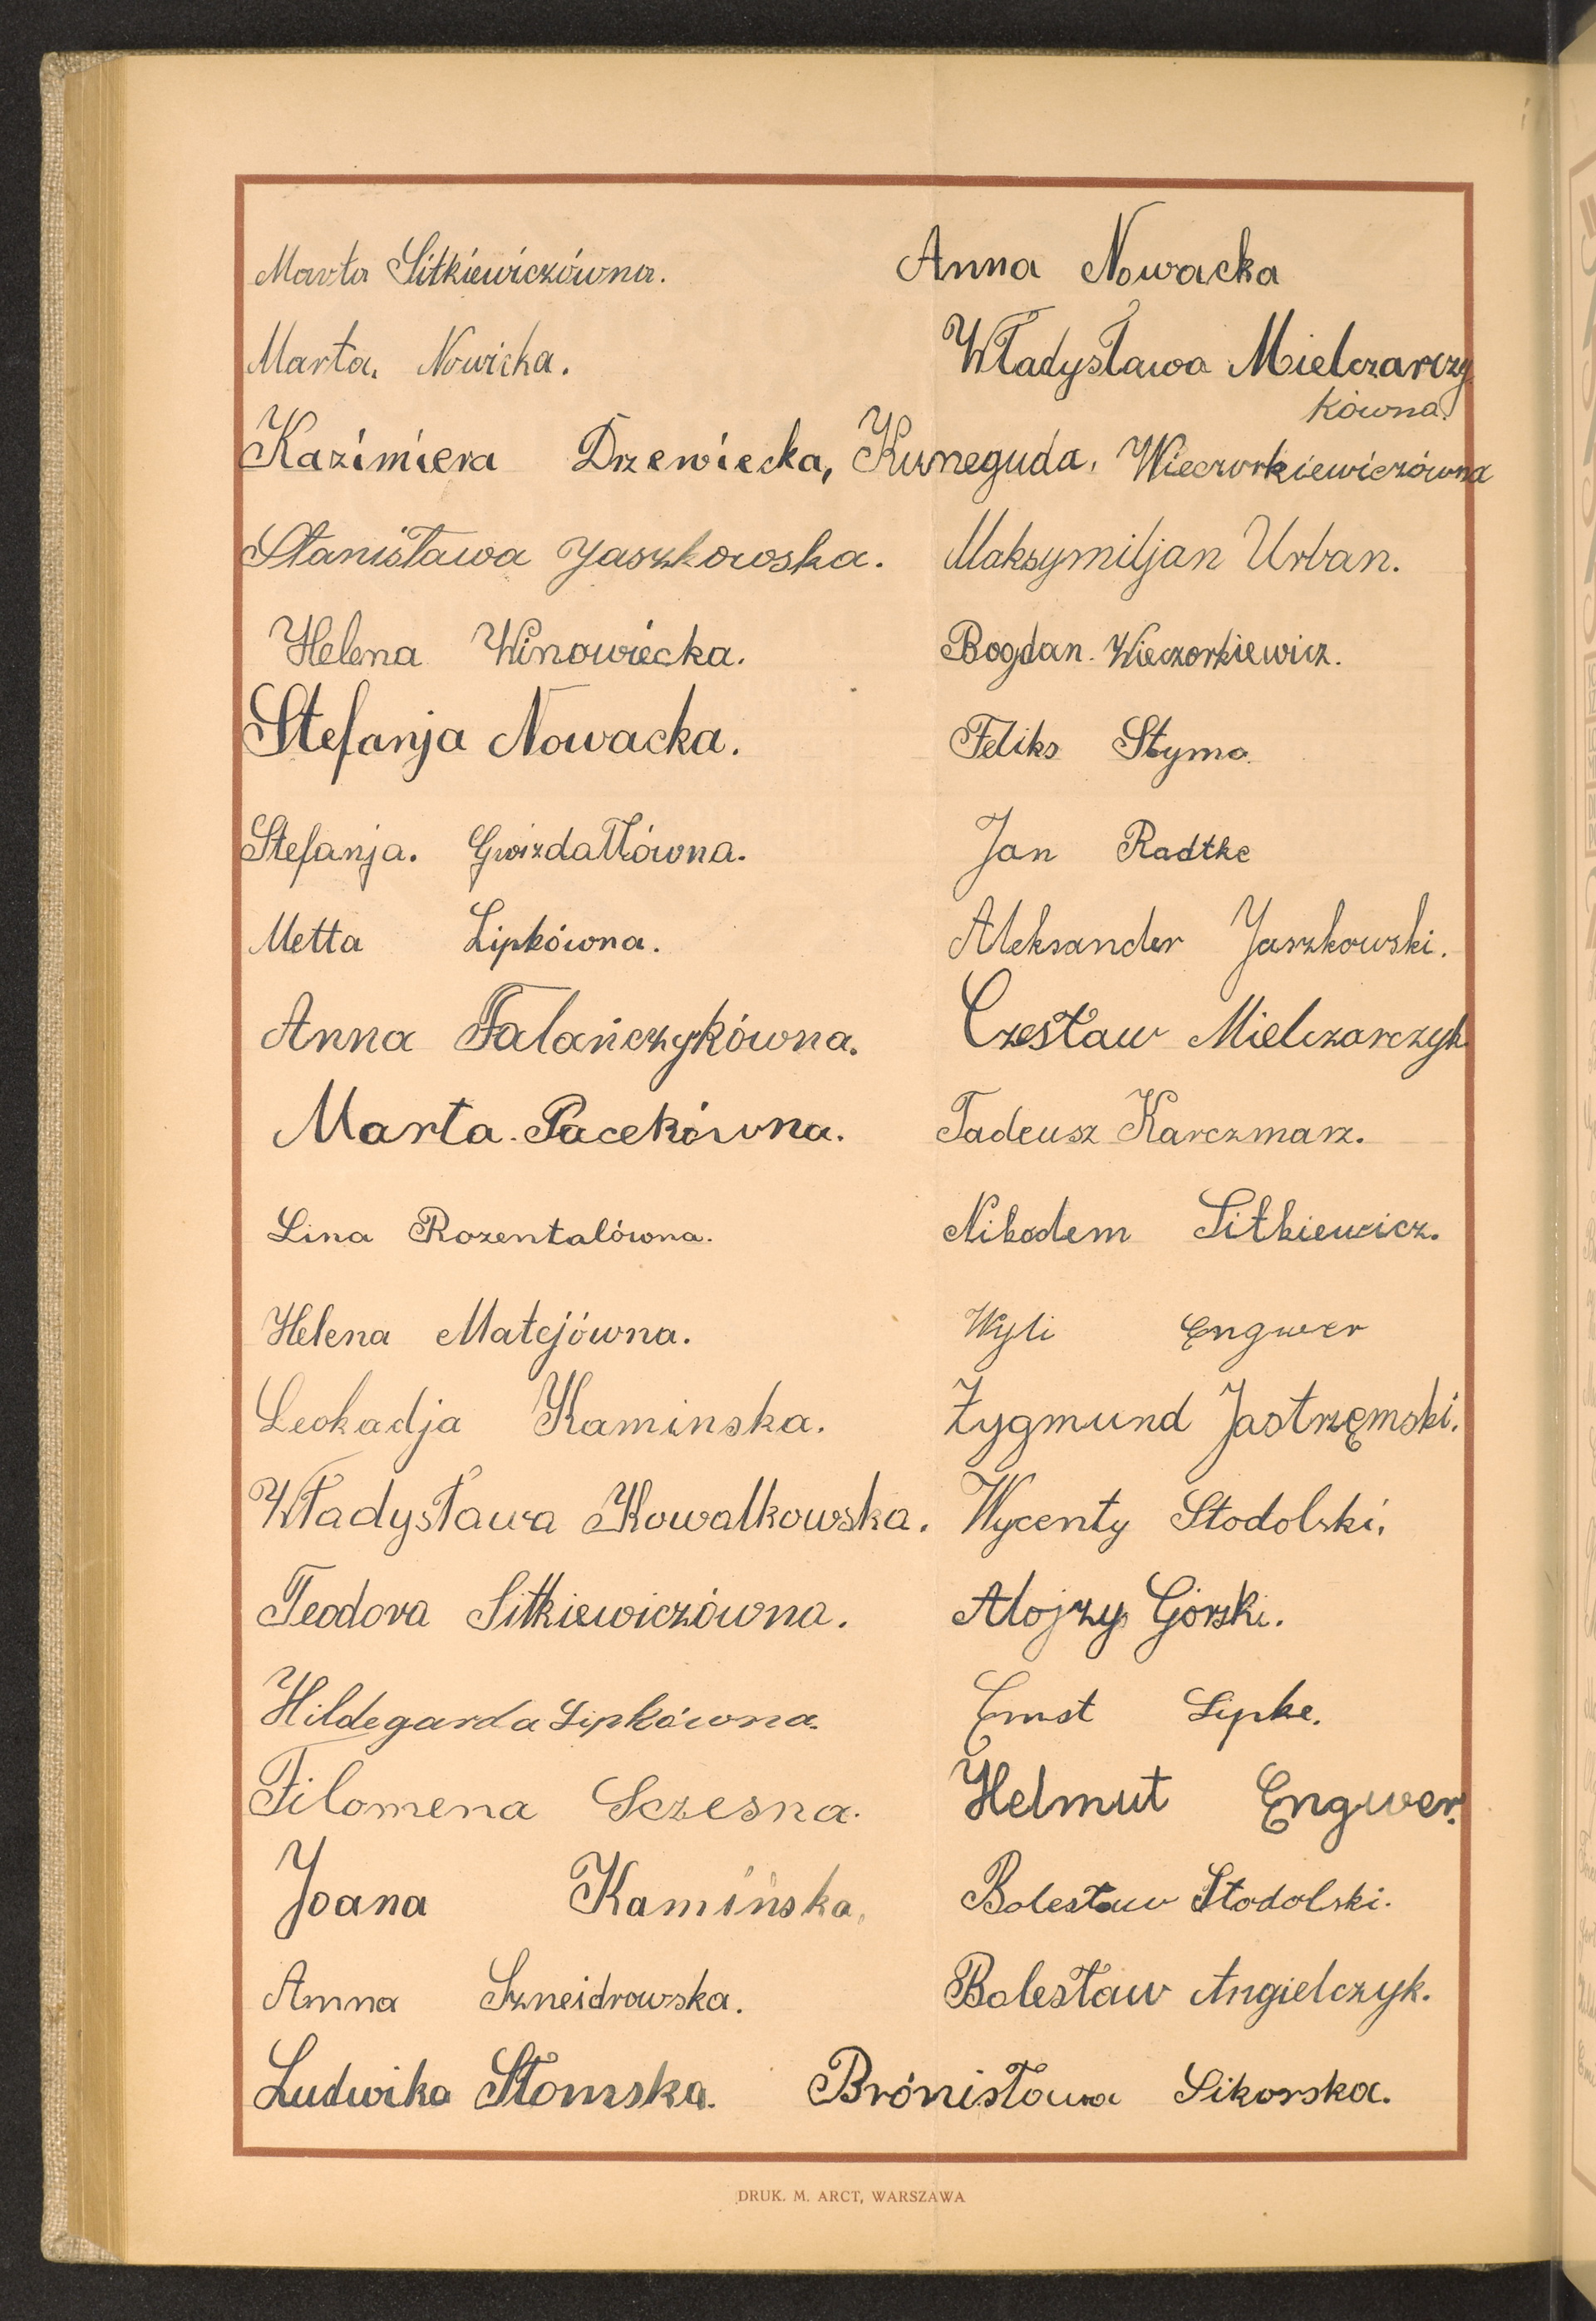 Marta Sitkiewiczówna. Anna Nowacka
Marta. Nowicka. Władysława Mielczarczy
kówna.
Kazimiera Drzewiecka, Kuneguda. Wieczorkiewiczówna
Stanisława Jaszkowska. Maksymiljan Urban.
Helena Winowiecka. Bogdan. Wieczorkiewicz.
Stefanja Nowacka. Feliks Styma.
Stefanja. Gwizdałłówna. Jan Radtke
Metta Lipkówna. Aleksander Jaszkowski.
Anna Falańczykówna. Czesław Mielczarczyk
Marta. Pacekówna. Tadeusz Karczmarz.
Lina Rozentalówna. Nikodem Sitkiewicz.
Helena Matejówna. Wyli Engwer
Leokadja Kaminska. Zygmund Jastrzęmski.
Władysława Kowalkowska. Wycenty Stodolski.
Teodora Sitkiewiczówna. Alojzy Górski.
Hildegarda Lipkówna. Ernst Lipke.
Filomena Sczesna. Helmut Engwer.
Joana Kamińska. Bolesław Stodolski.
Anna Szneidrowska. Bolesław Angielczyk.
Ludwika Słomska. Brónisława Sikorska.
DRUK. M. ARCT, WARSZAWA